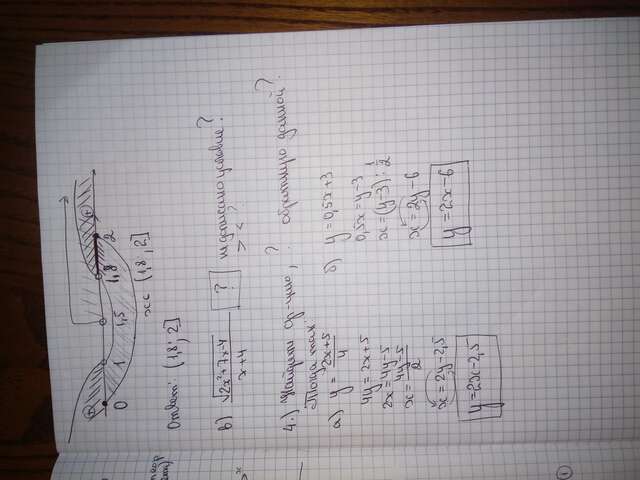 0 1 1,5 1,8 2
x ∈ (1,8; 2]
Ответ: (1,8; 2]
в) √(2x²+7x-4) / x+4 ? недописано условие?
> < ?
4.) Найдите ф-цию, ? обратную данной?
а) y = (2x+5)/4
4y = 2x+5
2x = 4y-5
x = (4y-5)/2
x = 2y-2,5
y = 2x-2,5
б) y = 0,5x+3
0,5x = y-3
x = (y-3) : 1/2
x = 2y-6
y = 2x-6